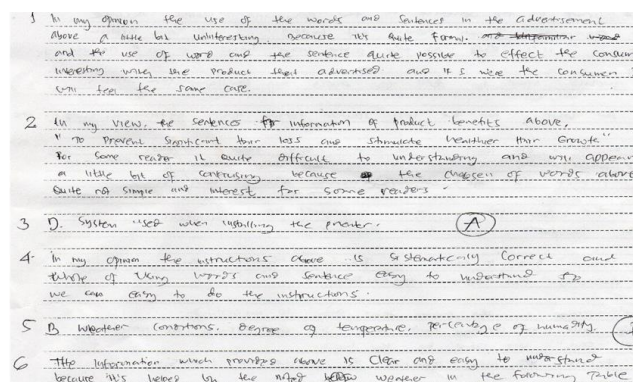 1 In my opinion the use of the words and sentences in the advertisement
above a little bit uninteresting because it's quite formal.
and the use of word and the sentence quite possible to effect the consumer
interesting with the product that advertised and if I were the consumer I
will feel the same case.
2 In my view, the sentences for information of product benefits above,
"To prevent significant hair loss and stimulate healthier Hair Growth"
For some reader it quite difficult to understanding and will appear
a little bit of confusing because the choosen of words above
quite not simple and interest for some readers.
3 D. System used when installing the printer. A
4. In my opinion the instructions above is systematicly correct and
of using words and sentence easy to understand so
we can easy to do the instructions.
5 B. Weather conditions, Degree of temperature, Percentage of humidity.
6 The information which provided above is clear and easy to understand
because it's helped by the weather in the following table